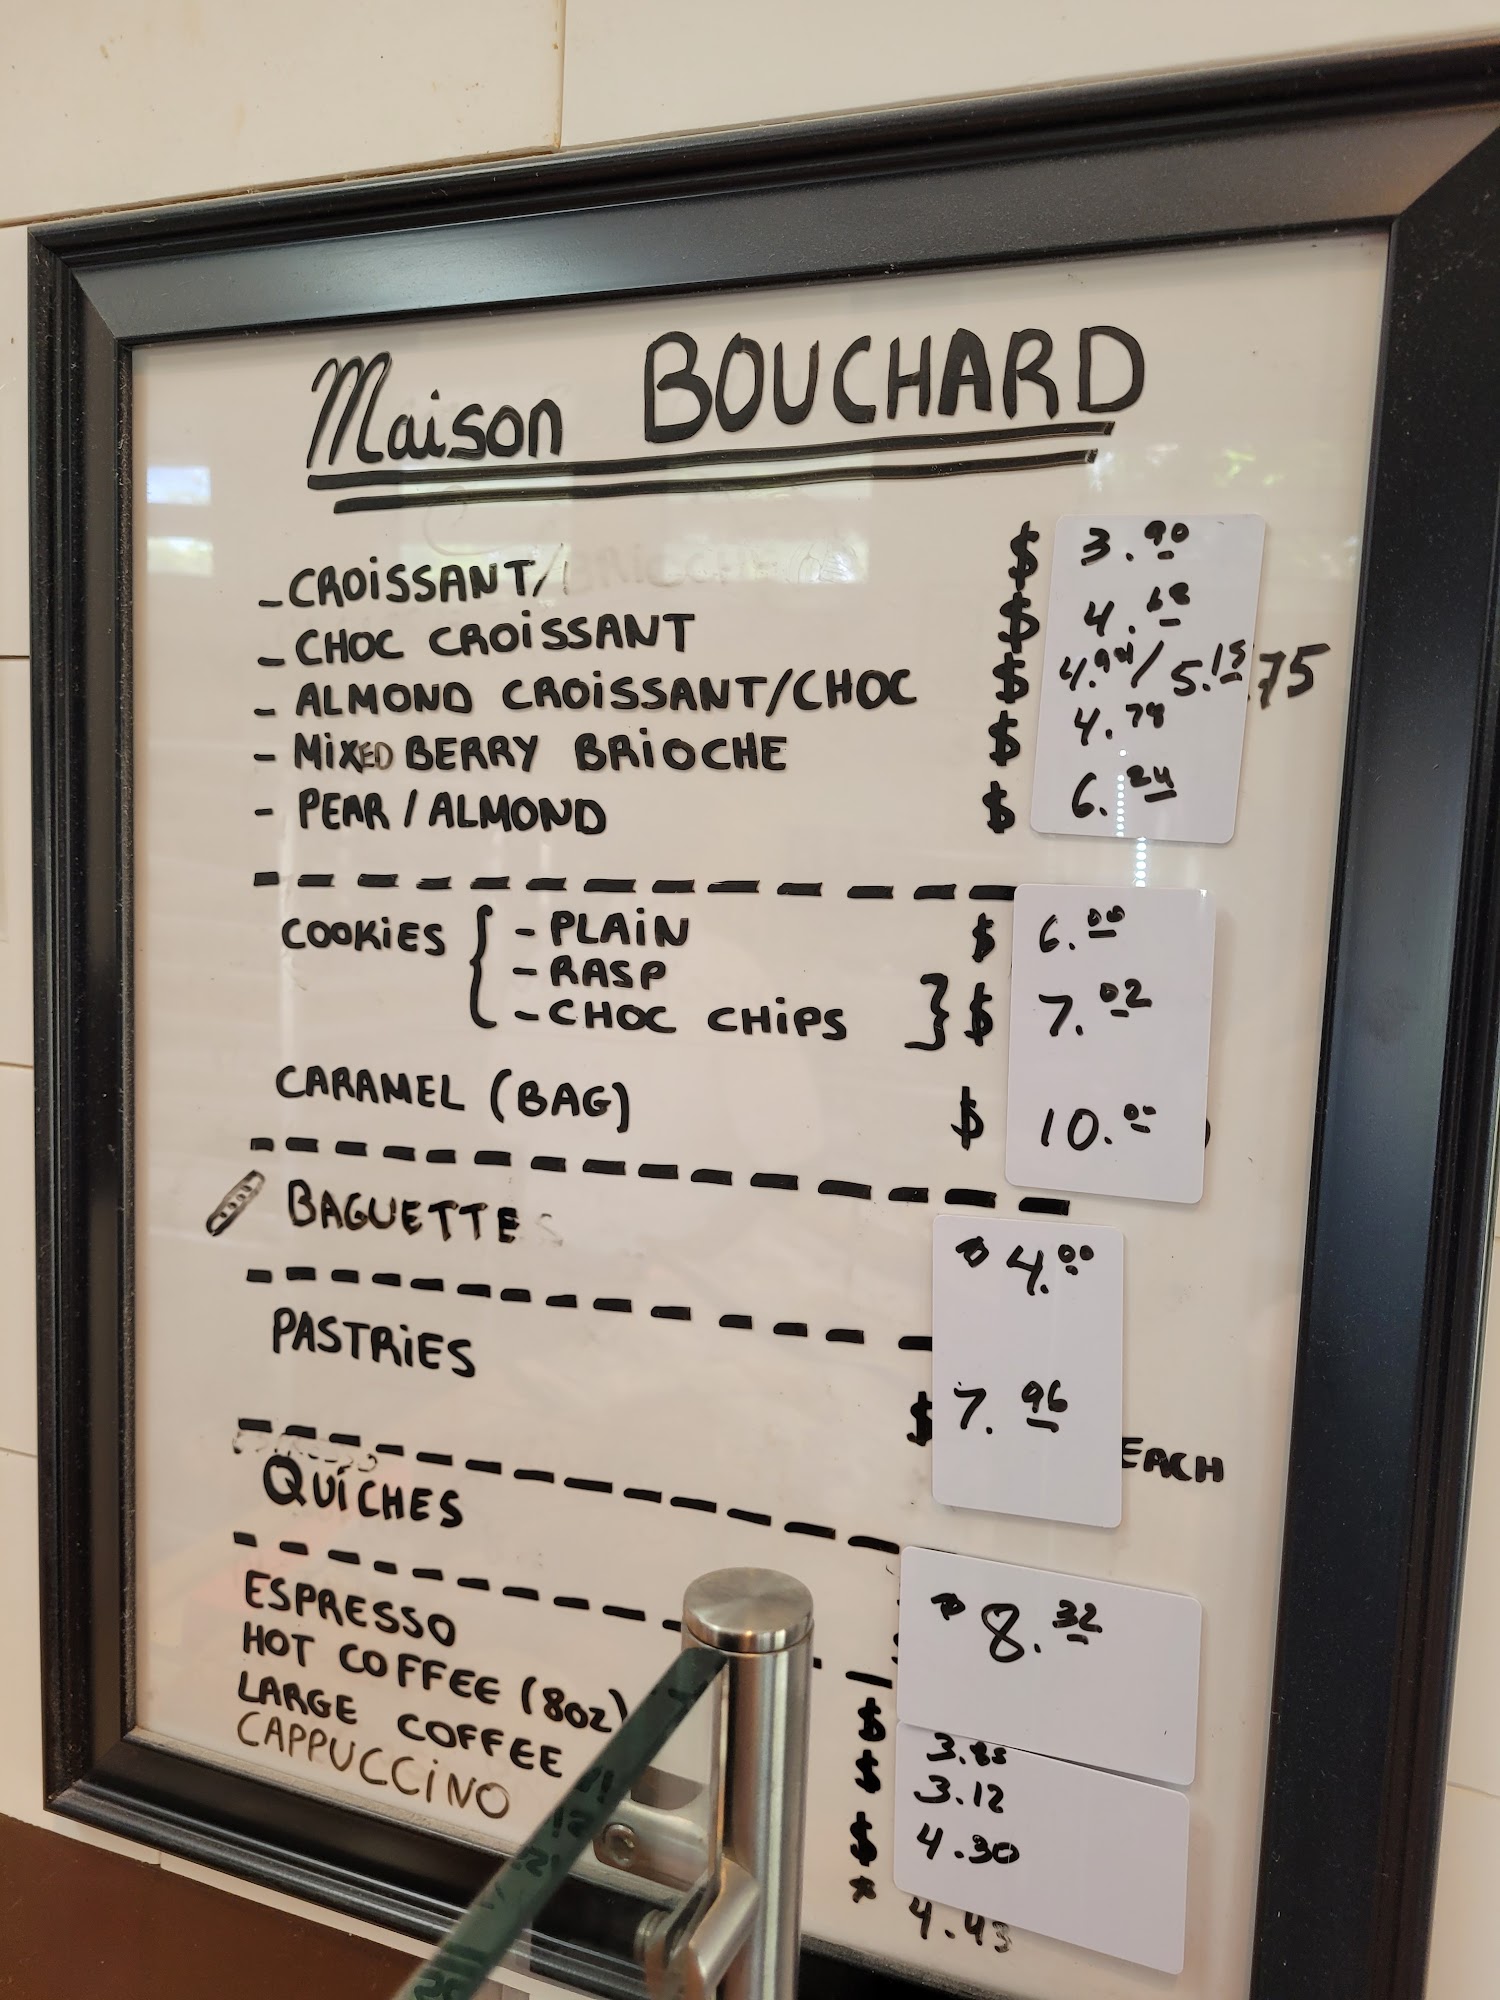 Maison BOUCHARD
- CROISSANT/ $ 3.90
- CHOC CROISSANT $ 4.68
- ALMOND CROISSANT/CHOC $ 4.94/5.15 75
- MIXED BERRY BRIOCHE $ 4.78
- PEAR/ALMOND $ 6.24
COOKIES { - PLAIN $ 6.00
- RASP
- CHOC CHIPS } $ 7.02
CARAMEL (BAG) $ 10.00
BAGUETTE $ 4.00
PASTRIES $ 7.96 EACH
QUICHES $ 8.32
ESPRESSO $ 3.85
HOT COFFEE (8oz) $ 3.12
LARGE COFFEE $ 4.30
CAPPUCCINO 4.43